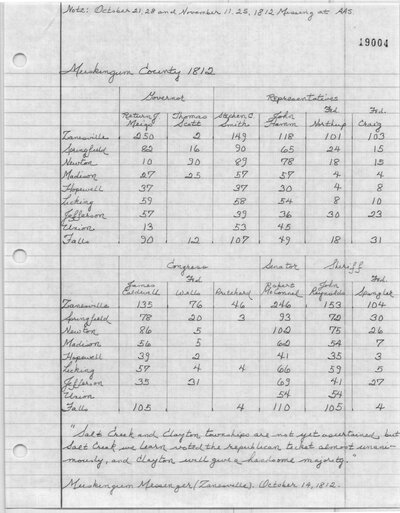 Note: October 21, 28 and November 11, 25, 1812 Missing at AAS.
19004
Muskingum County 1812
Governor Representatives
Fed. Fed.
Return J. Meigs Thomas Scott Stephen C. Smith John Hamm Northup Craig
Zanesville 250 2 149 118 101 103
Springfield 82 16 90 65 24 15
Newton 10 90 89 78 18 15
Madison 27 25 57 57 4 4
Hopewell 37 37 30 4 8
Licking 59 58 54 8 10
Jefferson 57 39 36 30 23
Union 13 53 45
Falls 90 12 107 49 18 31
Congress Senator Sheriff
Fed. Fed.
James Caldwell Wells Pritchard Robert McConnel John Reynolds Spangler
Zanesville 135 76 46 246 153 104
Springfield 78 20 3 93 72 30
Newton 86 5 102 75 26
Madison 56 5 62 54 7
Hopewell 39 2 41 35 3
Licking 57 4 4 66 59 5
Jefferson 35 31 69 41 27
Union 54 54
Falls 105 4 110 105 4
"Salt Creek and Clayton townships are not yet ascertained, but
Salt Creek we learn voted the republican ticket almost unani-
mously, and Clayton will give a handsome majority."
Muskingum Messenger (Zanesville). October 14, 1812.